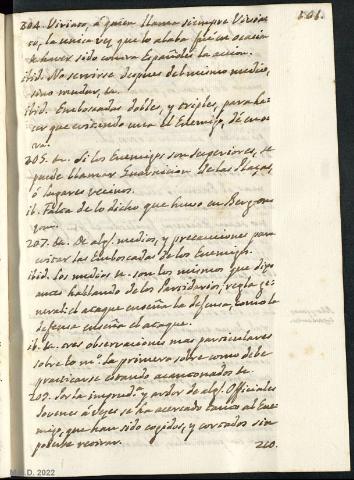 101.
204. Viriato, a quien llama siempre Viriati-
co, la unica vez que lo alaba fue en ocasion
de haver sido contra Españoles la accion.
ibid. No servirse despues del mismo medio,
sino mudar, &c.
ibid. Emboscadas dobles, y triples, para ha-
cer que evitando una el Enemigo, dé en o-
tra.
205. &c. Si los Enemigos son superiores, se
puede llamar Guarnicion de las Plazas,
ó lugares vecinos.
ib. Falta de lo dicho que huvo en Bergon-
207. &c. De algs. medios, y precauciones para
evitar las Emboscadas de los Enemigos.
ibid. Los medios &c. son los mismos que dixo
antes hablando de los Partidarios; regla ge-
neral: el ataque enseña la defensa, como la
defensa enseña el ataque.
ib. &c. tres observaciones mas particulares
sobre lo mo. la primera sobre como debe
practicarse estando acantonados &c.
209. Por la impruda. y ardor de algs. Officiales
Jovenes á veces se ha acercado tanto al Ene-
migo, que han sido cogidos, y cortados sin
poderse retirar.
210.
2022